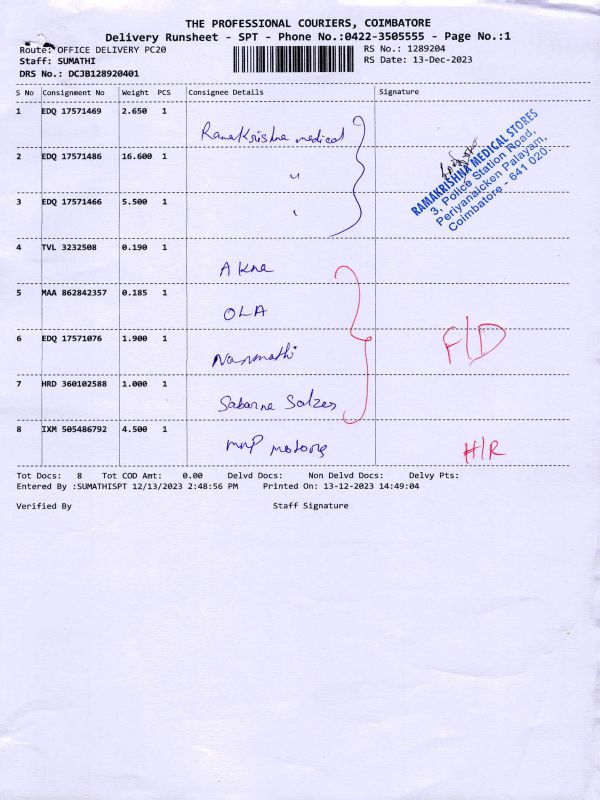 THE PROFESSIONAL COURIERS, COIMBATORE
Delivery Runsheet - SPT - Phone No.:0422-3505555 - Page No.:1
Route: OFFICE DELIVERY PC20
RS No.: 1289204
Staff: SUMATHI
RS Date: 13-Dec-2023
DRS No.: DCJB128920401
S No Consignment No Weight PCS Consignee Details Signature
1 EDQ 17571469 2.650 1 Ramakrishna medical
2 EDQ 17571486 16.600 1 "
3 EDQ 17571466 5.500 1 "
RAMAKRISHNA MEDICAL STORES
3, Police Station Road,
Periyanaicken Palayam,
Coimbatore - 641 020.
4 TVL 3232508 0.190 1
5 MAA 862842357 0.185 1 OLA
6 EDQ 17571076 1.900 1 F/D
7 HRD 360102588 1.000 1
8 IXM 505486792 4.500 1 H/R
Tot Docs: 8 Tot COD Amt: 0.00 Delvd Docs: Non Delvd Docs: Delvy Pts:
Entered By :SUMATHISPT 12/13/2023 2:48:56 PM Printed On: 13-12-2023 14:49:04
Verified By Staff Signature